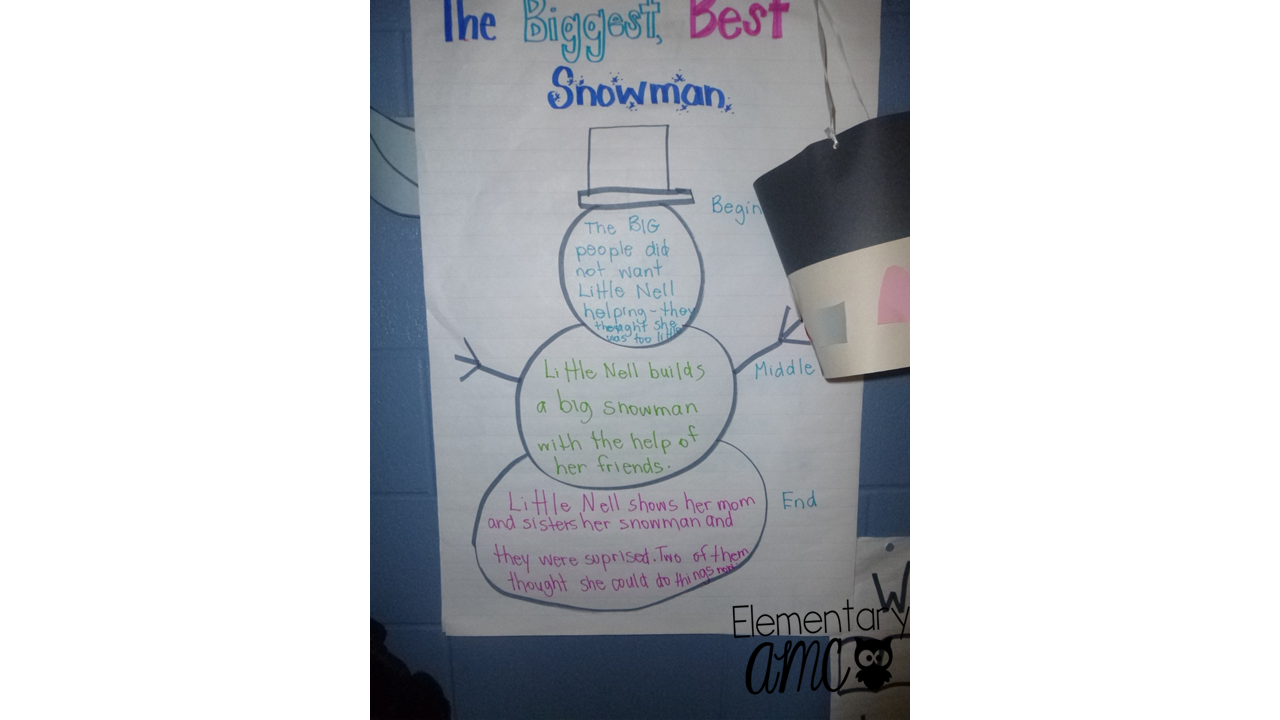 The Biggest, Best
Snowman
Begin
The BIG
people did
not want
Little Nell
helping-they
thought she
was too
Little Nell builds
a big snowman
with the help of
her friends.
Middle
Little Nell shows her mom
and sisters her snowman and
they were suprised. Two of them
thought she could do things now
End
W
Elementary
AMC